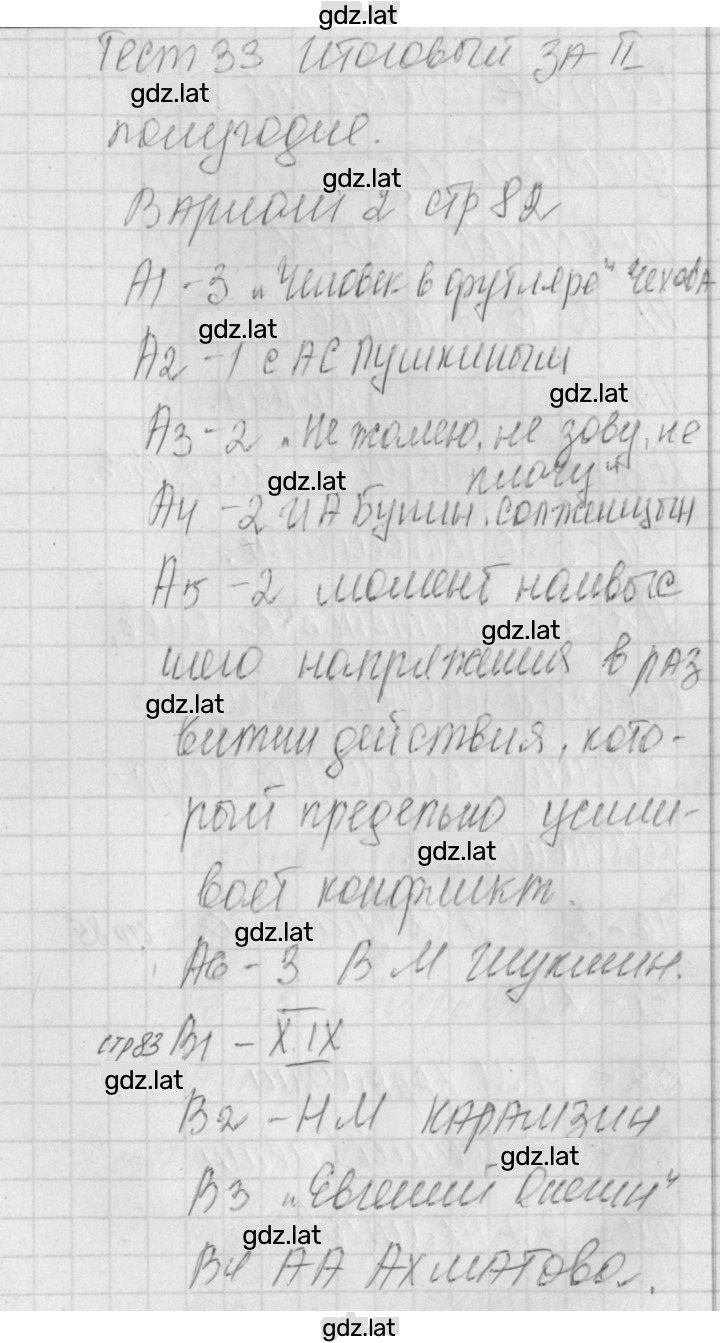 gdz.lat
Тест 33 Итоговый за II
gdz.lat
полугодие.
gdz.lat
Вариант 2 стр 82
А1 - 3 „Человек в футляре" Чехова
gdz.lat
А2 - 1 с АС Пушкиным
gdz.lat
А3 - 2 „Не жалею, не зову, не
плачу"
gdz.lat
А4 - 2 ИА Бунин, Солженицын
А5 - 2 момент наивыс
gdz.lat
шего напряжения в раз
gdz.lat
витии действия, кото-
рый предельно усили-
gdz.lat
вает конфликт.
gdz.lat
А6 - 3 В М Шукшин.
стр83 В1 - XIX
gdz.lat
В2 - НМ Карамзин
gdz.lat
В3 „Евгений Онегин"
gdz.lat
В4 АА Ахматова.
gdz.lat